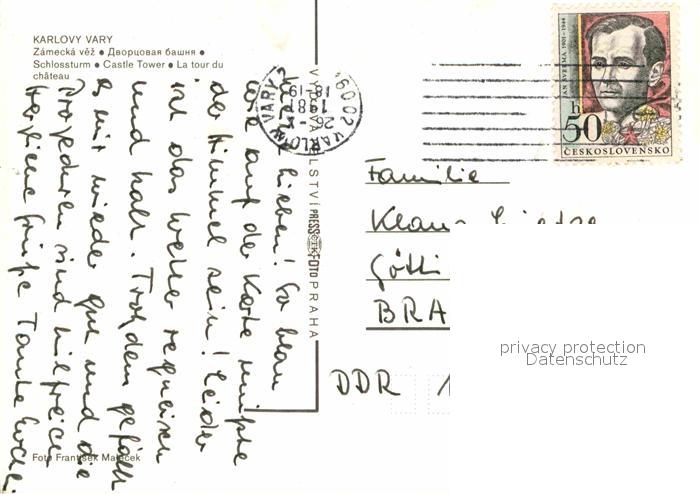 KARLOVY VARY
Zámecká věž ● Дворцовая башня ●
Schlossturm ● Castle Tower ● La tour du
château
lieben! So blau
wie auf der Karte müßte
der Himmel sein! Leider
ist das Wetter regnerisch
und kalt. Trotzdem gefällt
es mir wieder gut und die
Prozeduren sind hilfreich
Herzliche Grüße Tante
Foto František Maleček
PRESSFOTO PRAHA
36002 KARLOVY VARY
26.
1987
18-19
JAN ŠVERMA 1901-1944
h
50
ČESKOSLOVENSKO
Familie
Klaus
BRA
DDR 1
privacy protection
Datenschutz